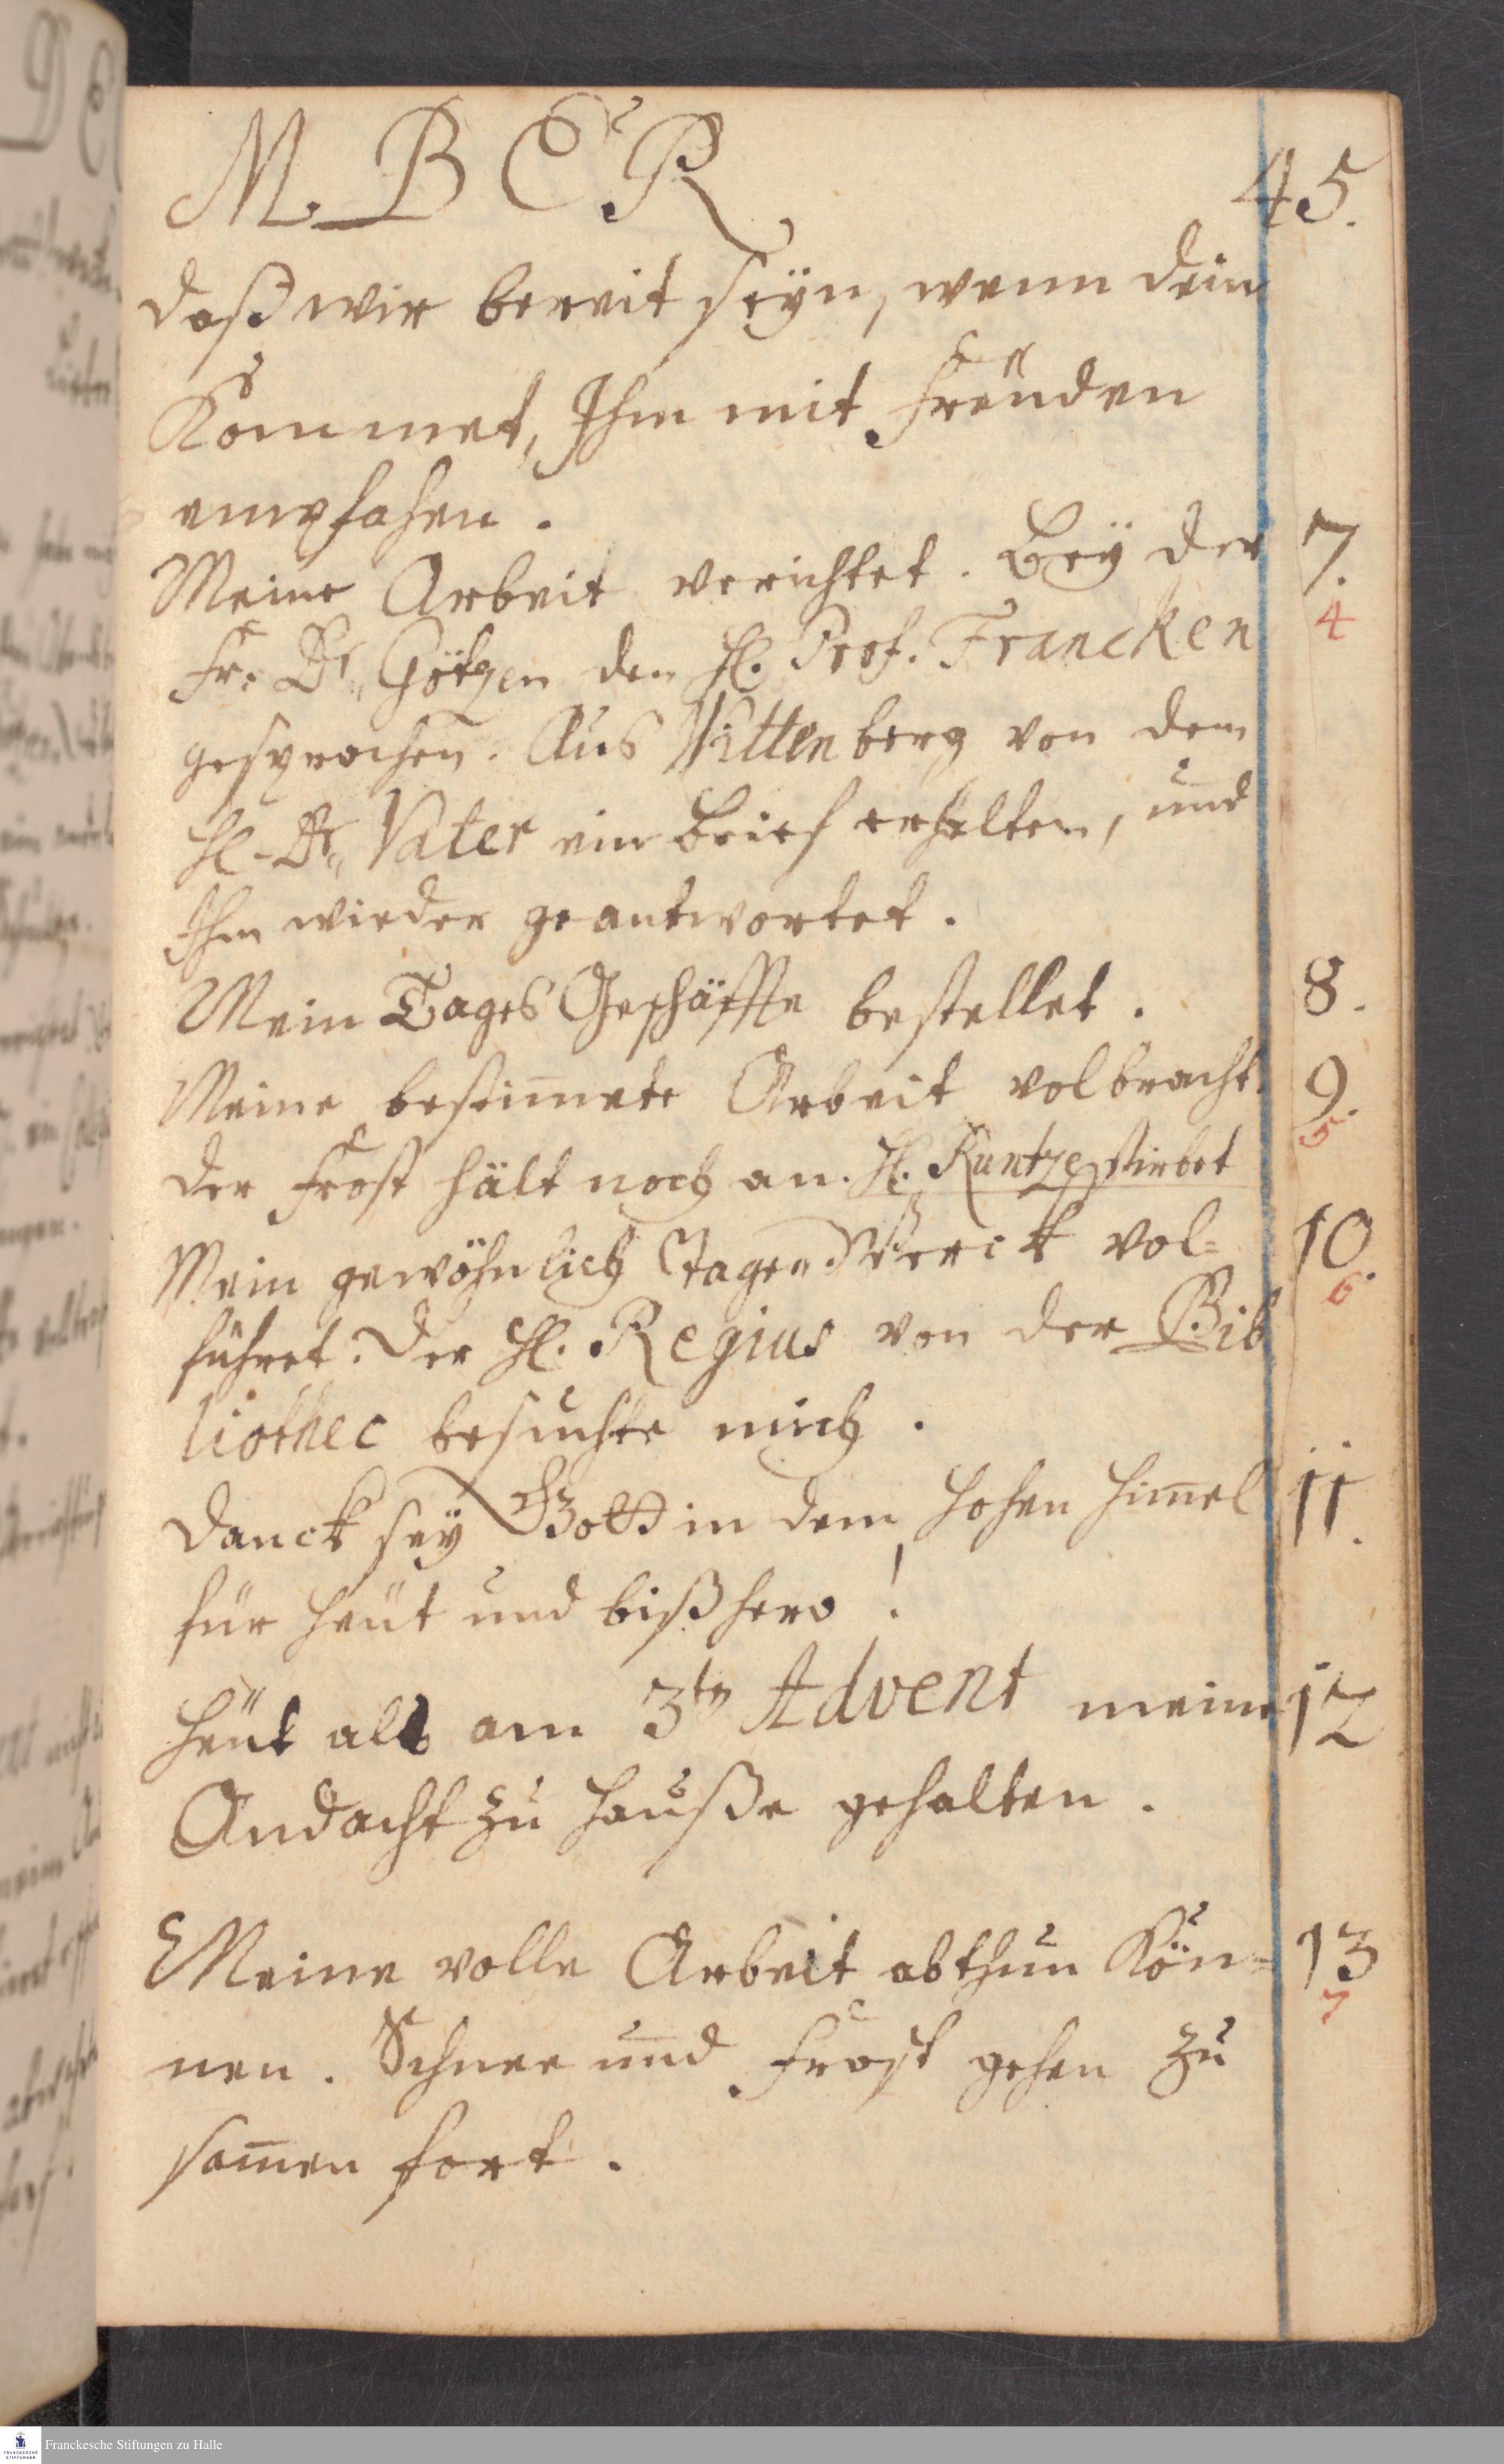 M B E R
45.
daß wir bereit seÿn, wenn dein
Kommet, Ihm mit Freuden
empfahen.
Meine Arbeit verichtet. Beÿ der 7.
4
Fr. Dr. Götzen den H. Prof. Francken
gesprochen. Aus Wittenberg von dem
H. Dr. Vater ein Brief erhalten, und
Ihm wieder geantwortet.
Mein Tages Geschäffte bestellet. 8.
Meine bestim̄ete Arbeit volbracht. 9.
5
der Frost hält noch an. H. Kuntze stirbet
Mein gewöhnlich Tagen Werck vol= 10.
6.
führet. Der H. Regius von der Bib
liothec besuchte mich.
Danck seÿ Gott in dem hohen Him̄el 11.
für heut und bißhero!
Heut als am 3tn Advent meine 12
Andacht zu Hauße gehalten.
Meine volle Arbeit abthun Kön= 13
7
nen. Schnee und Frost gehen zu
sam̄en fort.
Franckesche Stiftungen zu Halle